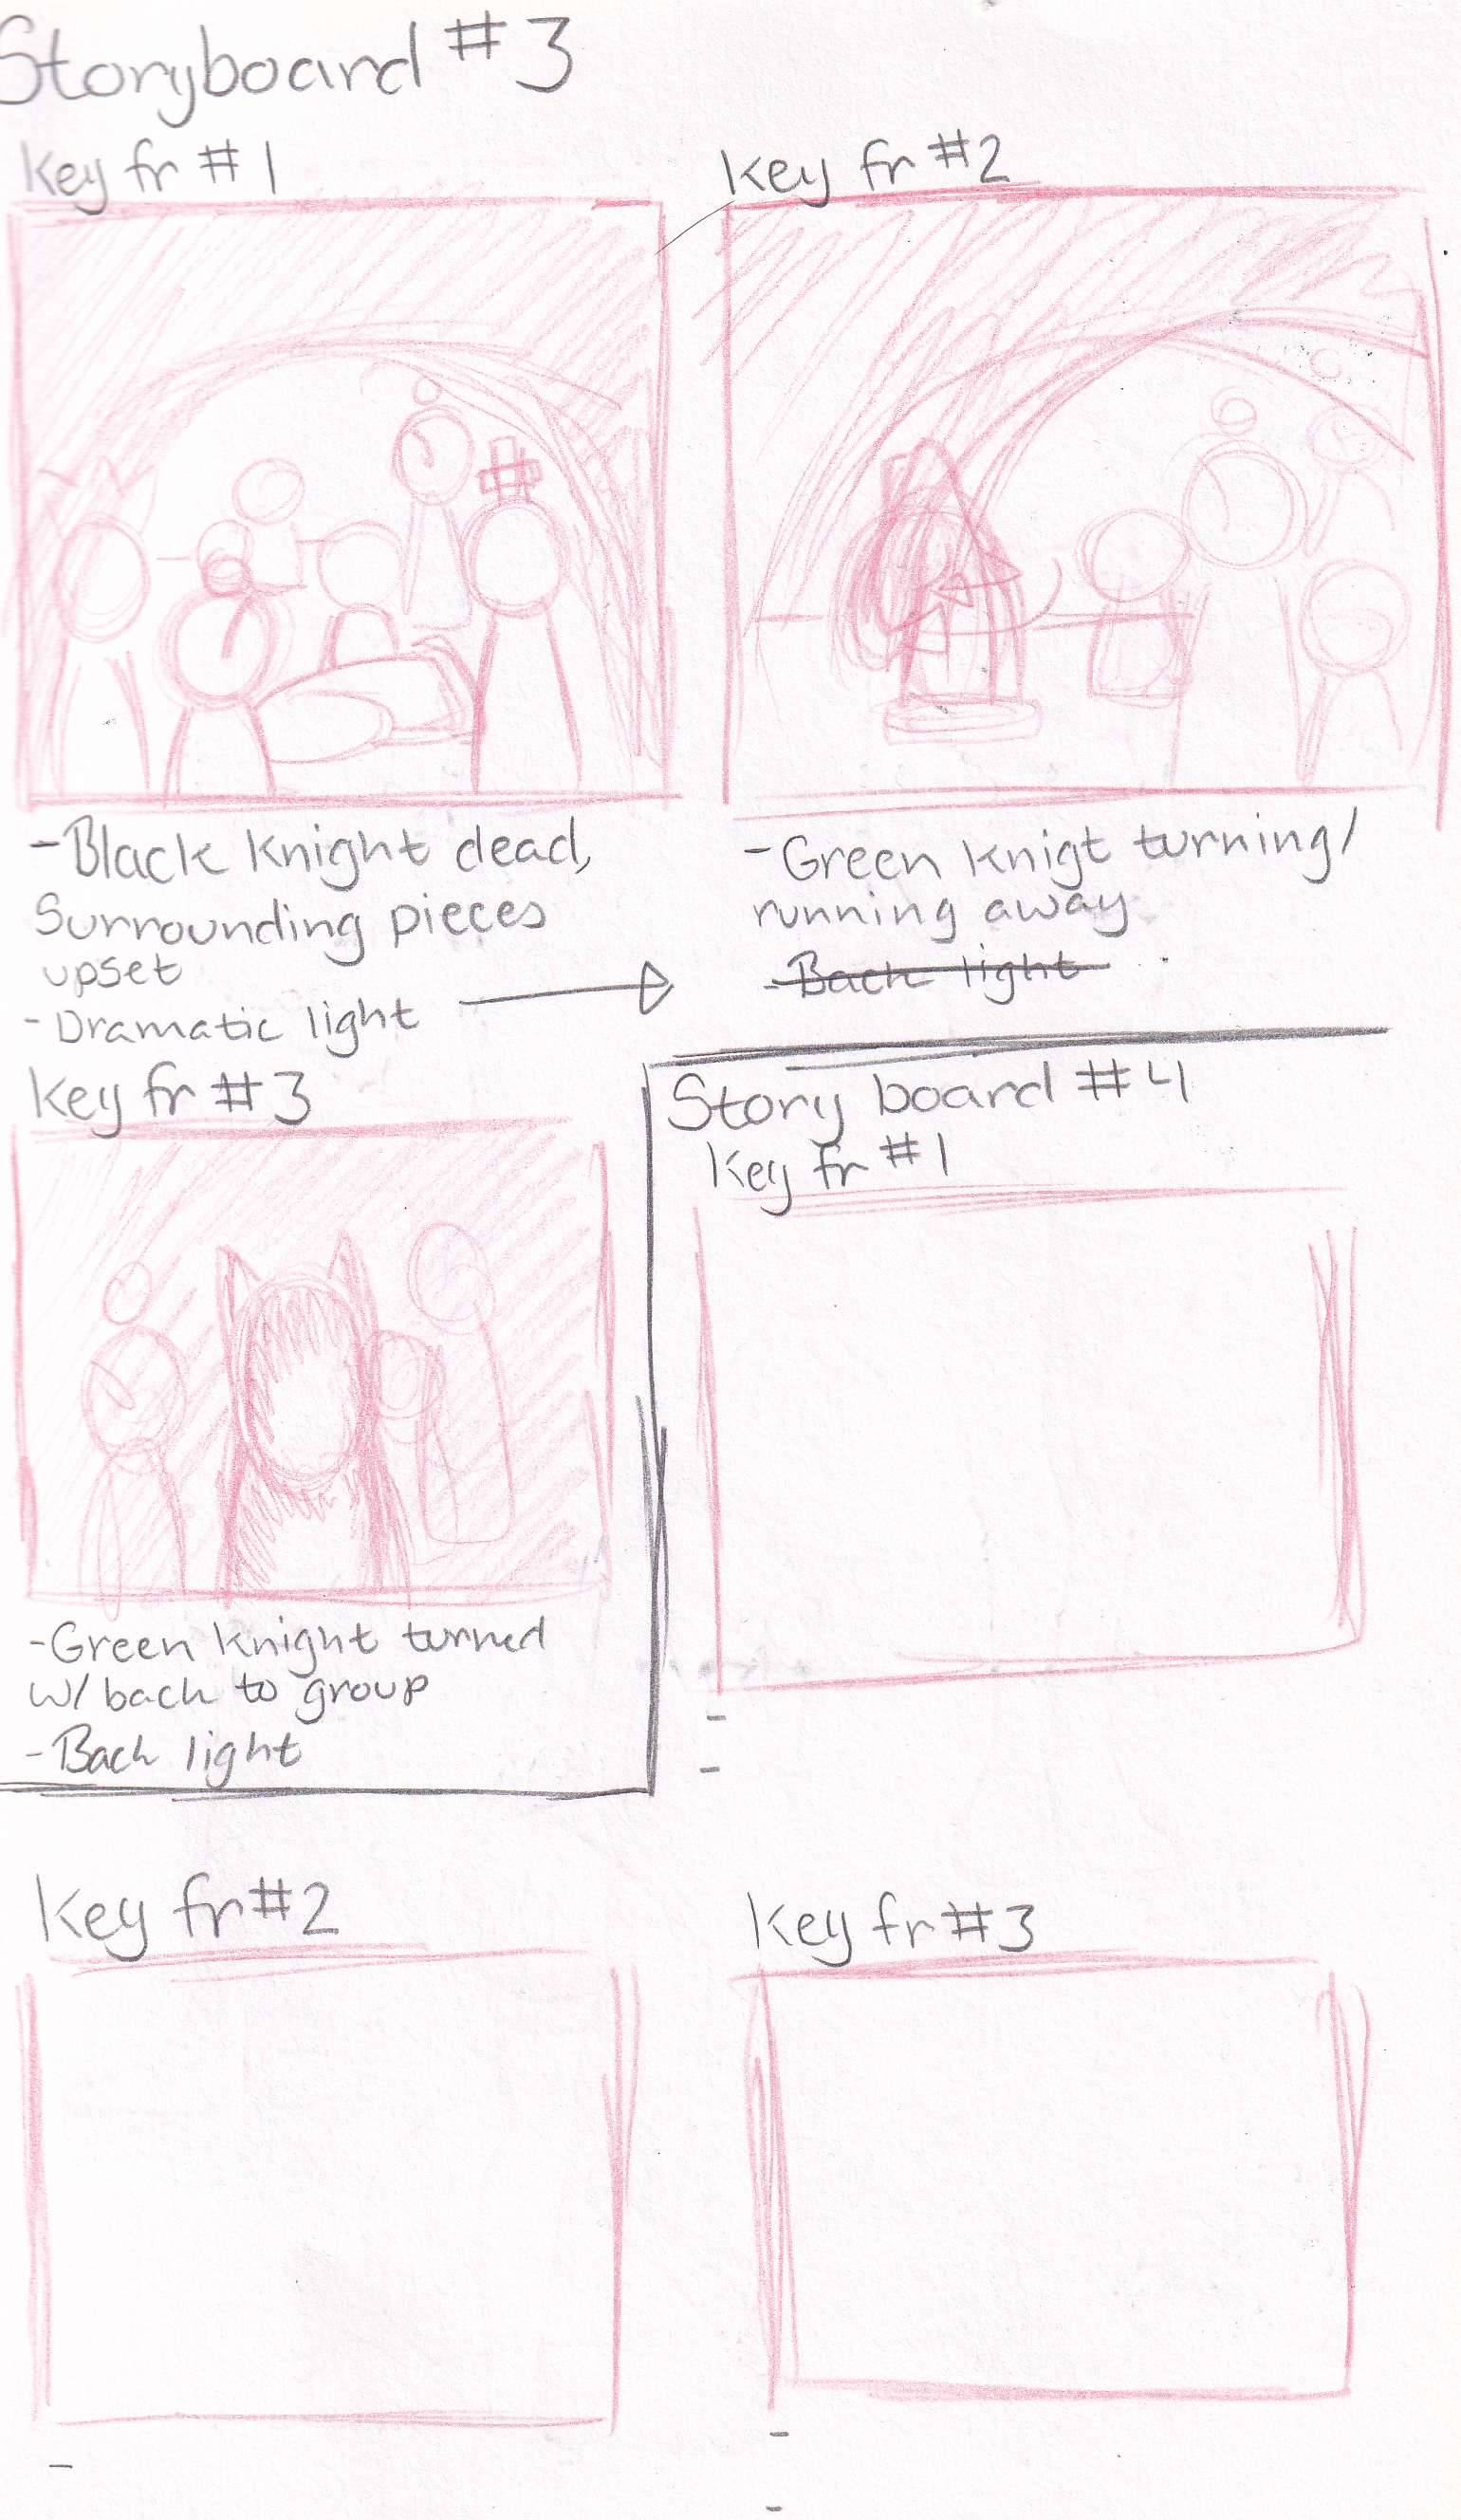 Storyboard #3
Key fr #1
Key fr #2
-Black Knight dead,
Surrounding pieces
upset
-Dramatic light
-Green Knigt turning/
running away
-Back light
Key fr #3
-Green Knight turned
w/ back to group
-Back light
Story board #4
Key fr #1
-
-
Key fr #2
-
Key fr #3
-
-